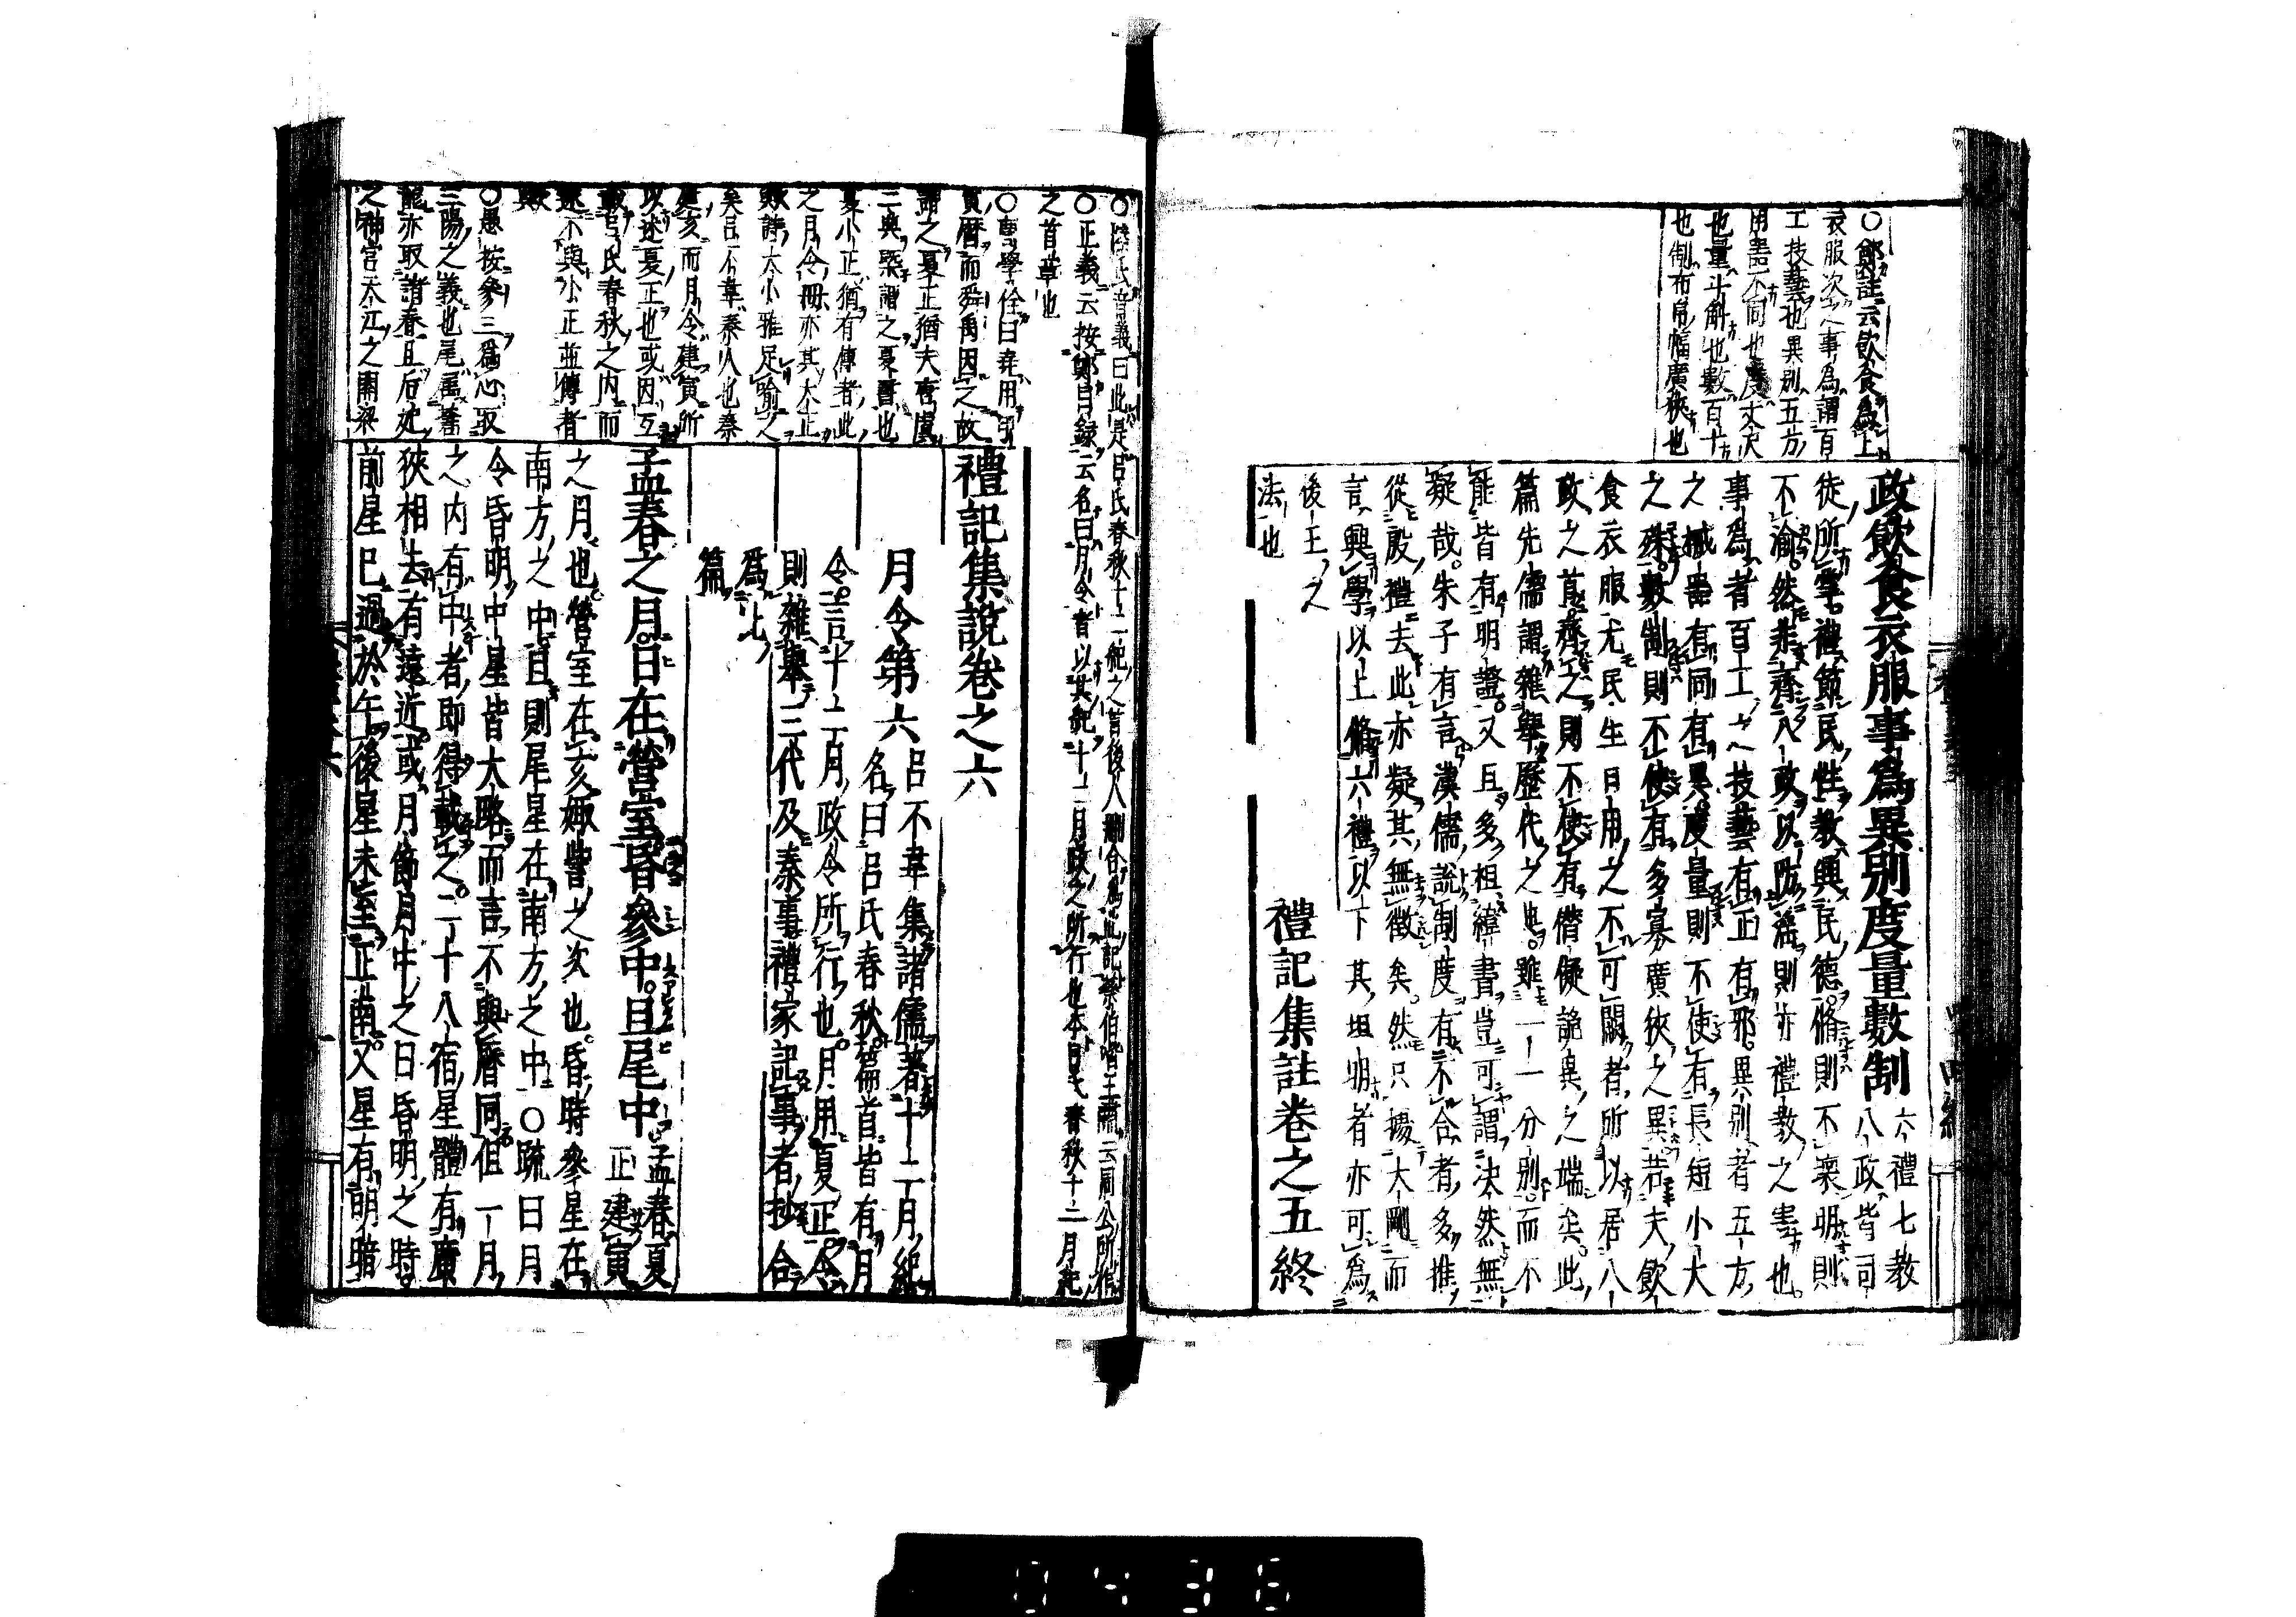 ○鄭註云飲食爲上
衣服次之事爲謂百
工技藝也異別五方
用器不同也度丈尺
也量斗斛也數百十
也制布帛幅廣狹也
政飲食衣服事爲異別度量數制六禮七教
八政皆司
徒所掌禮節民性教興民德脩則不壞明則
不渝然非齊八政以防淫則亦禮教之害也
事爲者百工之技藝有正有邪異別者五方
之械器有同有異度量則不使有長短小大
之殊數制則不使有多寡廣狹之異若夫飲
食衣服尤民生日用之不可闕者所以居八
政之首齊之則不使有僭儗詭異之端矣此
篇先儒謂雜舉歷代之典雖一一分別而不
能皆有明證又且多祖緯書豈可謂決然無
疑哉朱子有言漢儒說制度有不合者多推
從殷禮去此亦疑其無徵矣然只據大剛而
言興學以上脩六禮以下其坦明者亦可爲
後王之
法也
禮記集註卷之五終
○陸氏音義曰此是呂氏春秋十二紀之首後人刪合爲此記蔡伯喈王肅云周公所作
○正義云按鄭目錄云名曰月令者以其紀十二月政之所行也本呂氏春秋十二月紀
之首章也
夏曆而舜禹因之故
謂之夏正猶夫在虞
二典槩謂之夏書也
夏小正猶有傳者此
之月令冊亦其大正
歟詩大小雅足喻之
矣呂不韋秦人也秦
建亥而月令建寅所
以述夏正也或因互
載呂氏春秋之内而
遂不與小正並傳者
歟
○愚按參三爲心取
三陽之義也尾爲蒼
龍亦取諸春且后妃
之神宮天江之關梁
禮記集說卷之六
月令第六呂不韋集諸儒著十二月紀
名曰呂氏春秋篇首皆有月
令言十二月政令所行也月用夏正令
則雜舉三代及秦事禮家記事者抄合
爲此
篇
孟春之月日在營室昏參中旦尾中孟春夏
正建寅
之月也營室在亥娵訾之次也昏時參星在
南方之中旦則尾星在南方之中○疏曰月
令昏明中星皆大略而言不與曆同但一月
之内有中者即得載之二十八宿星體有廣
狹相去有遠近或月節月中之日昏明之時
前星已過於午後星未至正南又星有明暗
0436